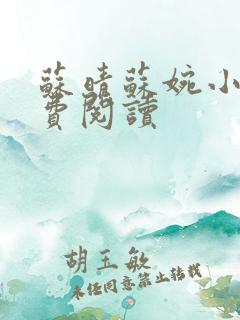 蘇晴蘇婉小
費閱讀
胡玉敏
未经同意禁止转载